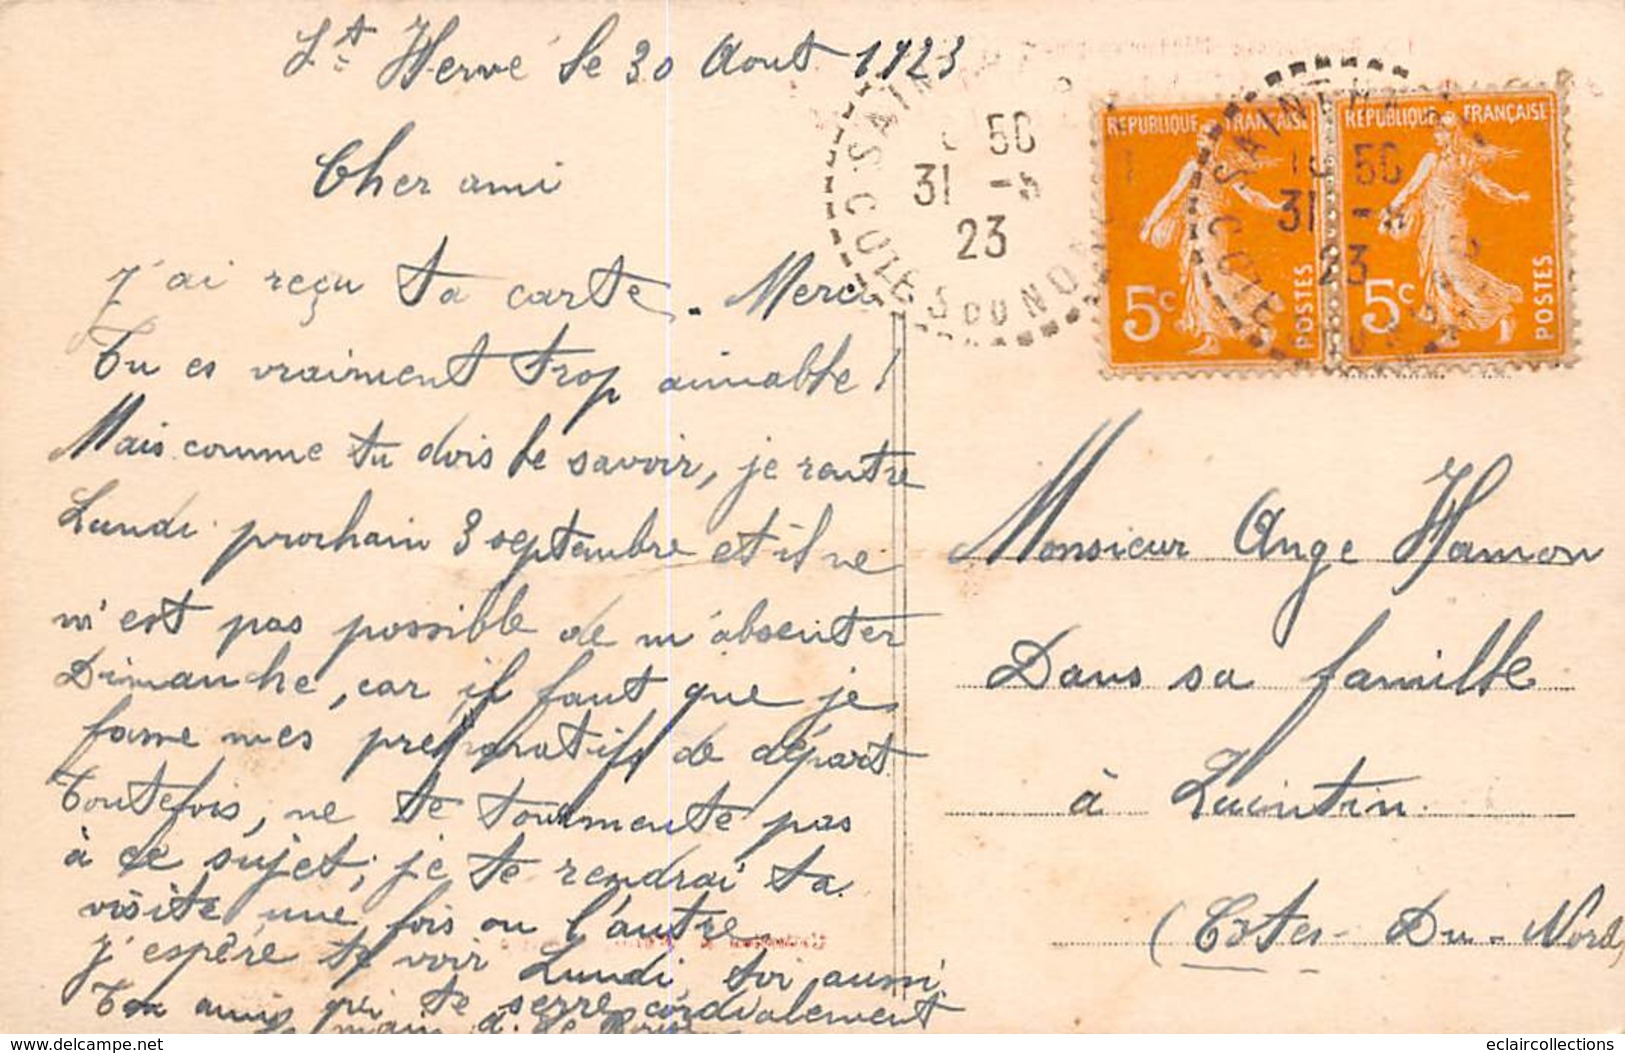 St Hervé le 30 Aout 1923
Cher ami
J'ai reçu ta carte. Merci
Tu es vraiment trop aimable !
Mais comme tu dois le savoir, je rentre
Lundi prochain 3 septembre et il ne
m'est pas possible de m'absenter
Dimanche, car il faut que je
fasse mes préparatifs de départ.
Toutefois, ne te tourmente pas
à ce sujet ; je te rendrai ta
visite une fois ou l'autre.
J'espère te voir Lundi, toi aussi.
Ton ami qui te serre cordialement
la main
Monsieur Ange Hamon
Dans sa famille
à Quintin
(Côtes-Du-Nord)
RÉPUBLIQUE FRANÇAISE
5c POSTES
RÉPUBLIQUE FRANÇAISE
5c POSTES
50
31 -8
23
COTES DU NORD
50
31 -8
23
eclaircollections